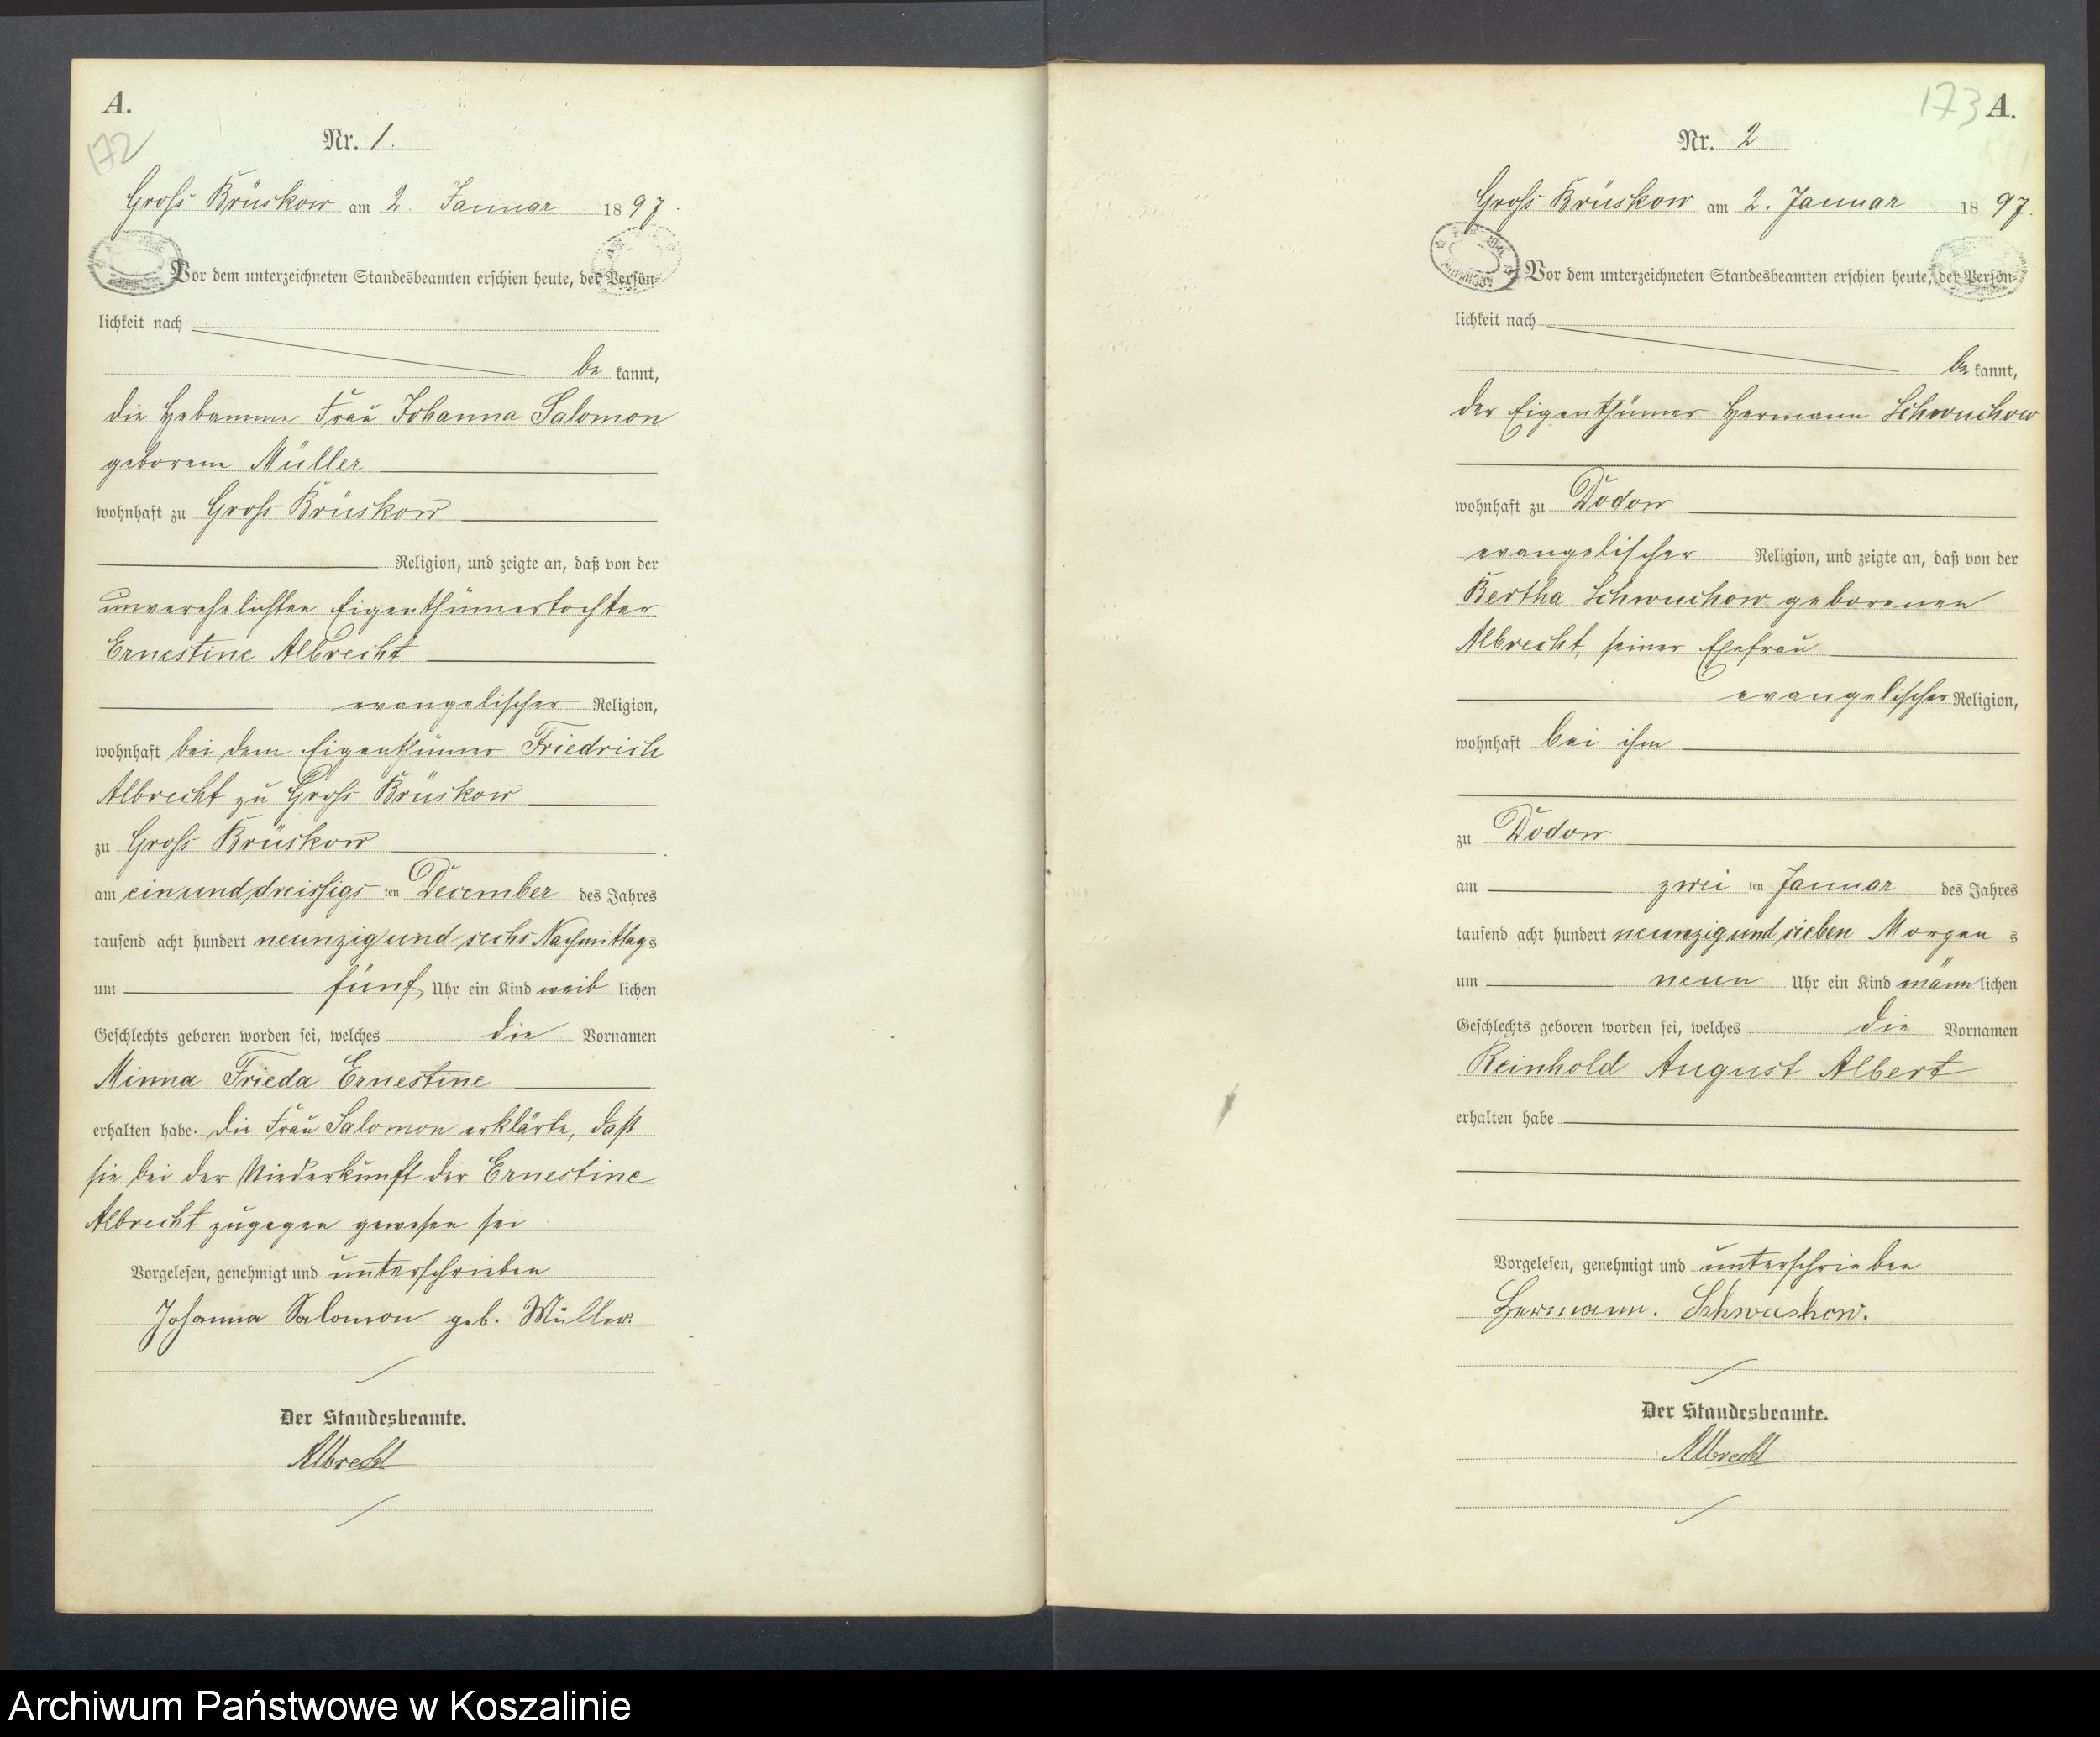 A.
172
Nr. 1.
Gross Brüskow am 2. Januar 1897.
Vor dem unterzeichneten Standesbeamten erschien heute, der Persön-
lichkeit nach
be kannt,
die Hebamme Frau Johanna Salomon
geborene Müller
wohnhaft zu Gross Brüskow
Religion, und zeigte an, daß von der
unverehelichten Eigenthümertochter
Ernestine Albrecht
evangelischer Religion,
wohnhaft bei dem Eigenthümer Friedrich
Albrecht zu Gross Brüskow
zu Gross Brüskow
am einunddreissigs ten December des Jahres
tausend acht hundert neunzig und sechs Nachmittags
um fünf Uhr ein Kind weib lichen
Geschlechts geboren worden sei, welches die Vornamen
Minna Frieda Ernestine
erhalten habe. Die Frau Salomon erklärte, daß
sie bei der Niederkunft der Ernestine
Albrecht zugegen gewesen sei
Vorgelesen, genehmigt und unterschrieben
Johanna Salomon geb. Müller.
Der Standesbeamte.
Albrecht
173 A.
Nr. 2
Gross Brüskow am 2. Januar 1897.
Vor dem unterzeichneten Standesbeamten erschien heute, der Persön-
lichkeit nach
be kannt,
der Eigenthümer Hermann Schwuchow
wohnhaft zu Dodow
evangelischer Religion, und zeigte an, daß von der
Bertha Schwuchow geborenen
Albrecht, seiner Ehefrau
evangelischer Religion,
wohnhaft bei ihm
zu Dodow
am zwei ten Januar des Jahres
tausend acht hundert neunzig und sieben Morgen s
um neun Uhr ein Kind männ lichen
Geschlechts geboren worden sei, welches die Vornamen
Reinhold August Albert
erhalten habe
Vorgelesen, genehmigt und unterschrieben
Hermann. Schwuchow.
Der Standesbeamte.
Albrecht
Archiwum Państwowe w Koszalinie